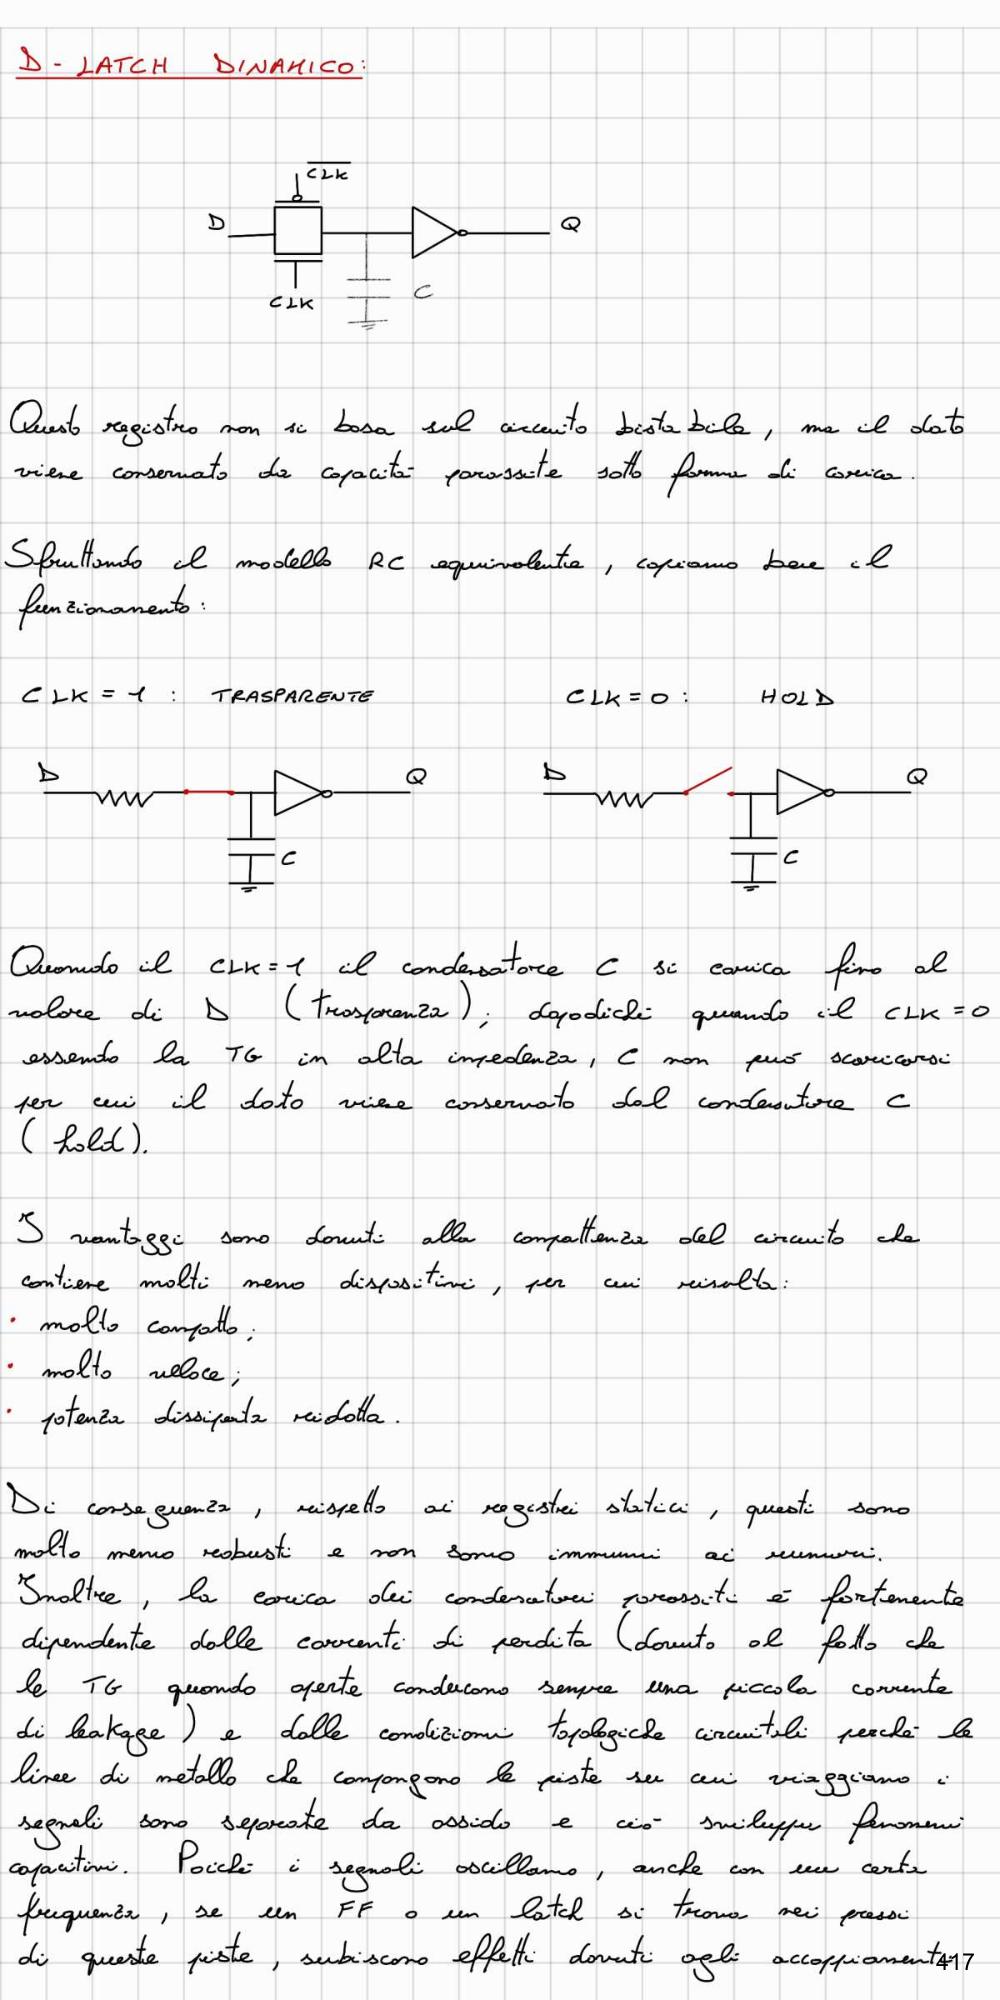 D - LATCH DINAMICO:
CLK
D
Q
C
CLK
Questo registro non si basa sul circuito bistabile, ma il dato
viene conservato da capacità parassite sotto forma di carica.
Sfruttando il modello RC equivalente, capiamo bene il
funzionamento:
CLK = 1 : TRASPARENTE
CLK = 0 : HOLD
D
Q
D
Q
C
C
Quando il CLK = 1 il condensatore C si carica fino al
valore di D (trasparenza); dopodiché quando il CLK = 0
essendo la TG in alta impedenza, C non può scaricarsi
per cui il dato viene conservato dal condensatore C
(hold).
I vantaggi sono dovuti alla compattenza del circuito che
contiene molti meno dispositivi, per cui risulta:
• molto compatto;
• molto veloce;
• potenza dissipata ridotta.
Di conseguenza, rispetto ai registri statici, questi sono
molto meno robusti e non sono immuni ai rumori.
Inoltre, la carica dei condensatori parassiti è fortemente
dipendente dalle correnti di perdita (dovuto al fatto che
le TG quando aperte conducono sempre una piccola corrente
di leakage) e dalle condizioni topologiche circuitali perché le
linee di metallo che compongono le piste su cui viaggiano i
segnali sono separate da ossido e ciò sviluppa fenomeni
capacitivi. Poiché i segnali oscillano, anche con una certa
frequenza, se un FF o un latch si trova nei pressi
di queste piste, subiscono effetti dovuti agli accoppiamenti
417